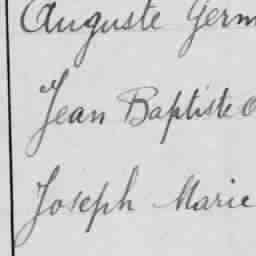 Auguste Germ
Jean Baptiste
Joseph Marie